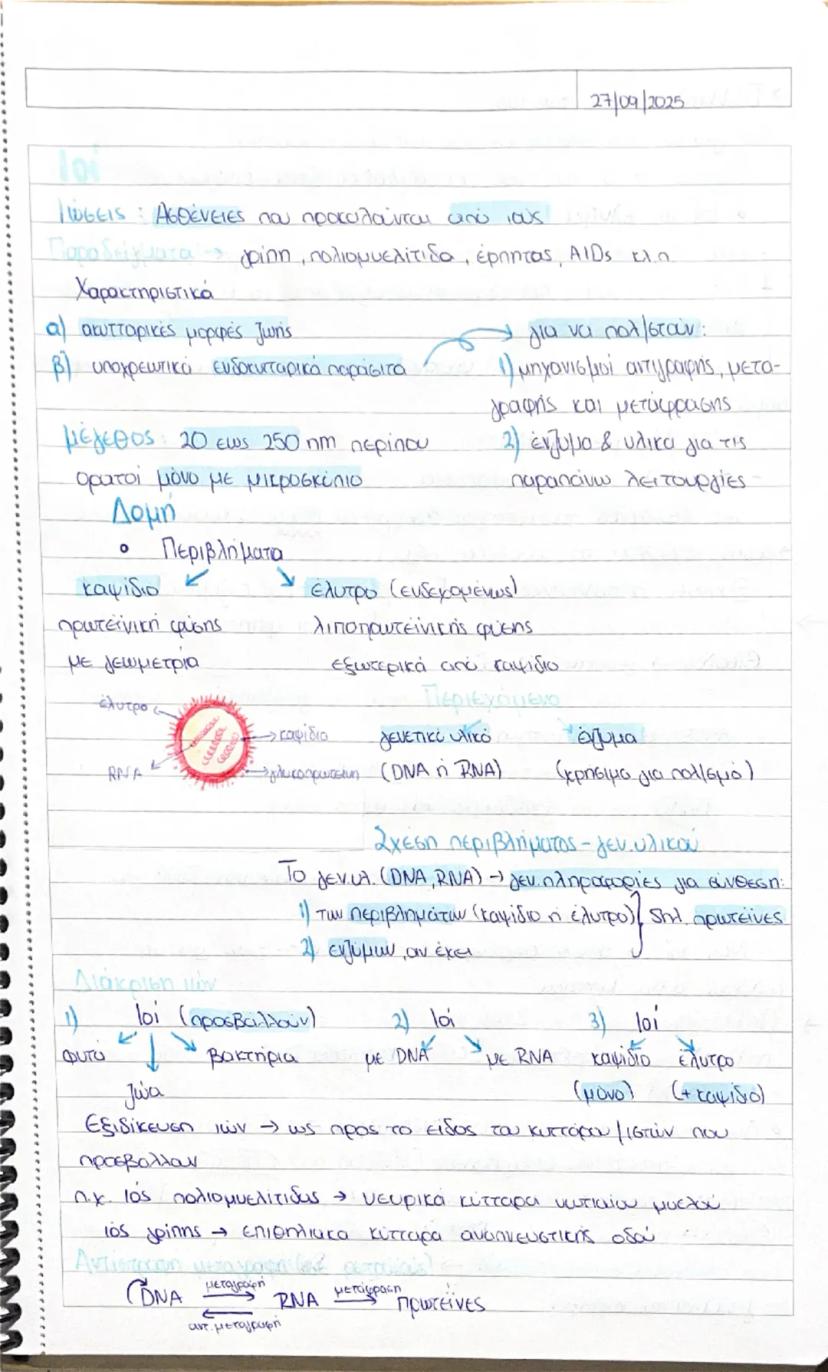 27/09/2025
Ιοί
Ιώσεις: Ασθένειες που προκαλούνται από ιούς
Παραδείγματα → γρίπη, πολιομυελίτιδα, έρπητας, AIDs κλπ
Χαρακτηριστικά
α) ακυτταρικές μορφές ζωής
β) υποχρεωτικά ενδοκυτταρικά παράσιτα
για να πολ/στούν:
1) μηχανισμοί αντιγραφής, μετα-
γραφής και μετάφρασης
2) ένζυμα & υλικά για τις
παραπάνω λειτουργίες
μέγεθος: 20 εως 250 nm περίπου
ορατοί μόνο με μικροσκόπιο
Δομή
Περιβλήματα
καψίδιο
έλυτρο (ενδεχομένως)
πρωτεϊνική φύσης
λιποπρωτεϊνικής φύσης
με γεωμετρία
εξωτερικά από καψίδιο
Περιεχόμενο
έλυτρο
καψίδιο
RNA
γλυκοπρωτεΐνη
γενετικό υλικό
ένζυμα
(DNA ή RNA)
(χρήσιμα για πολ/σμό)
Σχέση περιβλήματος - γεν. υλικού
Το γεν.υλ. (DNA, RNA) → γεν. πληροφορίες για σύνθεση:
1) των περιβλημάτων (καψίδιο ή έλυτρο) } δηλ. πρωτεϊνες
2) ενζύμων, αν έχει
Διάκριση ιών
1) Ιοί (προσβάλλουν) 2) Ιοί 3) Ιοί
φυτά βακτήρια με DNA με RNA καψίδιο έλυτρο
ζώα (μόνο) (+καψίδιο)
Εξιδίκευση ιών → ως προς το είδος του κυττάρου/ιστών που
προσβάλλουν
π.χ. Ιός πολιομυελίτιδας → νευρικά κύτταρα νωτιαίου μυελού
ιός γρίπης → επιθηλιακά κύτταρα αναπνευστικής οδού
Αντίστροφη μεταγραφή
DNA μεταγραφή RNA μετάφραση πρωτεϊνες
αντ. μεταγραφή